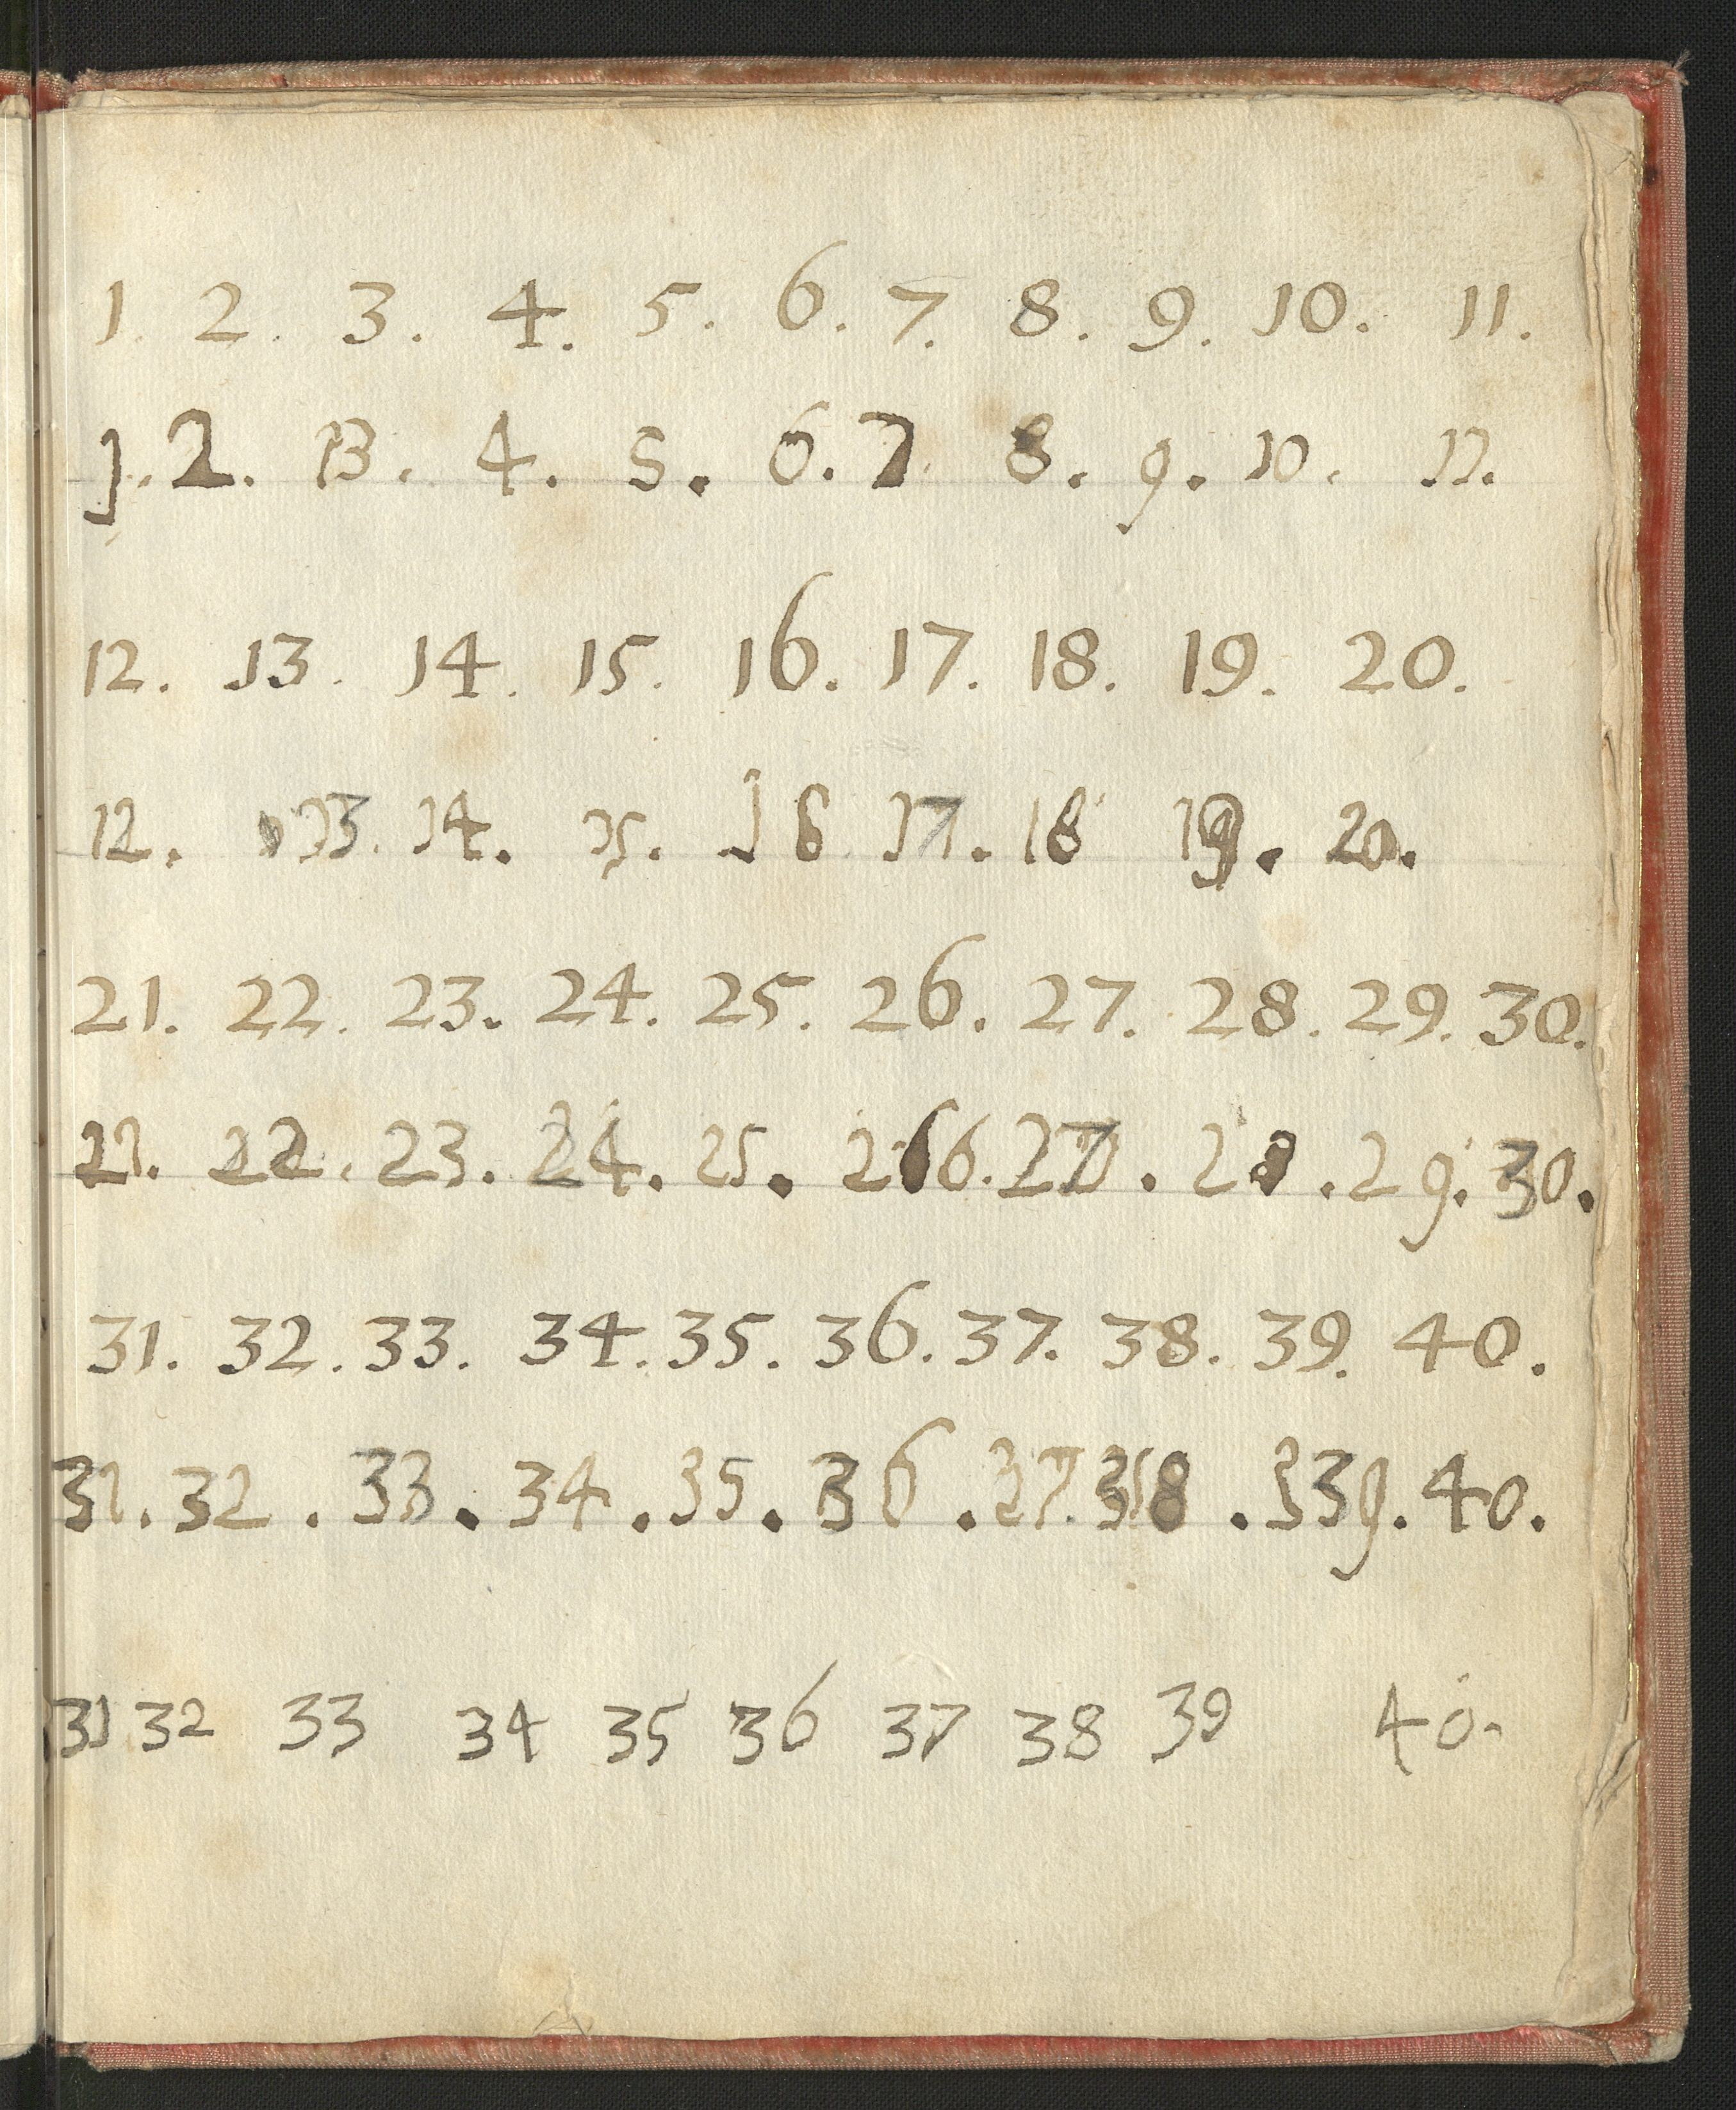 1. 2. 3. 4. 5. 6. 7. 8. 9. 10. 11.
1. 2. 13. 4. 5. 6. 7. 8. 9. 10. 11.
12. 13. 14. 15. 16. 17. 18. 19. 20.
12. 13. 14. 15. 16 17. 18 19. 20.
21. 22. 23. 24. 25. 26. 27. 28. 29. 30.
21. 22. 23. 24. 25. 266. 27. 28. 29. 30.
31. 32. 33. 34. 35. 36. 37. 38. 39. 40.
31. 32. 33. 34. 35. 36. 37. 38. 339. 40.
31 32 33 34 35 36 37 38 39 40.